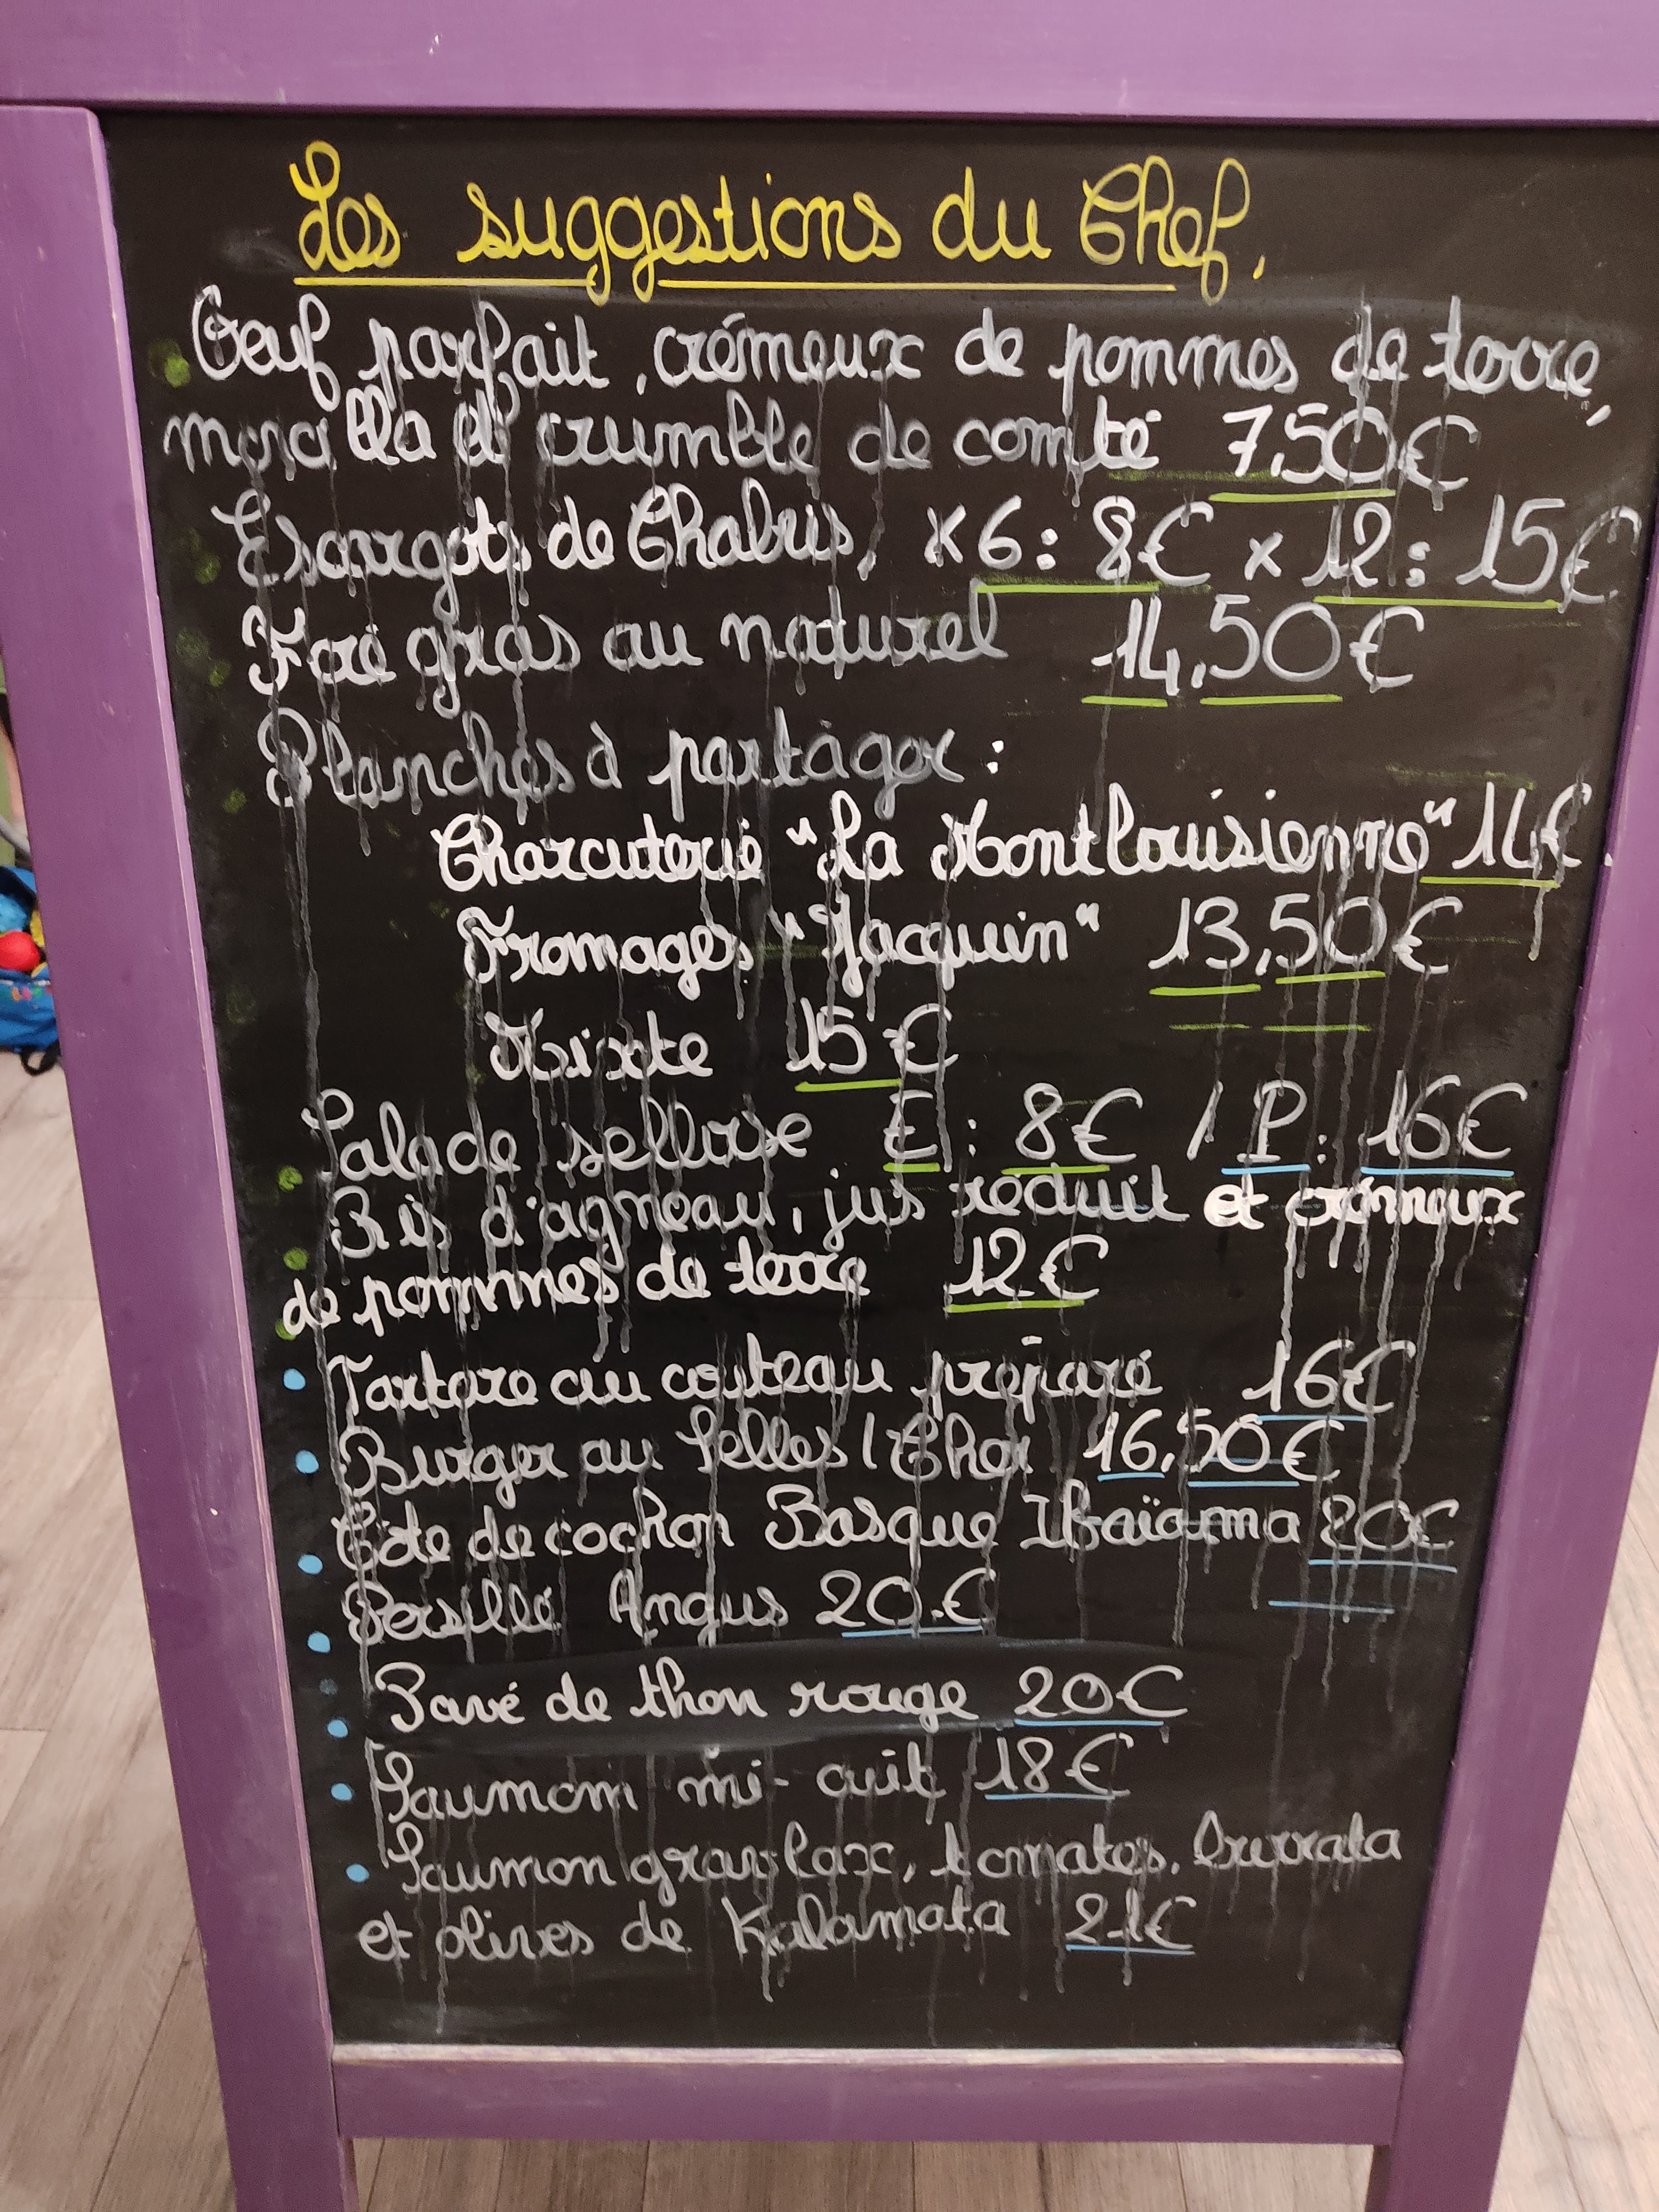 Les suggestions du Chef,
Oeuf parfait, crémeux de pommes de terre,
et crumble de comté 7,50€
Escargots de Chabris, x6 : 8€ x 12 : 15€
Foie gras au naturel 14,50€
Planches à partager :
Charcuterie "La Montlouisienne" 14€
Fromages "Jacquin" 13,50€
Mixte 15€
Salade selloise E : 8€ / P : 16€
Ris d'agneau, jus réduit et crémeux
de pommes de terre 12€
Tartare au couteau préparé 16€
Burger au Selles/Cher 16,50€
Côte de cochon Basque Ibaïama 20€
Persillé Angus 20€
Pavé de thon rouge 20€
Saumon mi-cuit 18€
Saumon gravlax, tomates, burrata
et olives de Kalamata 21€